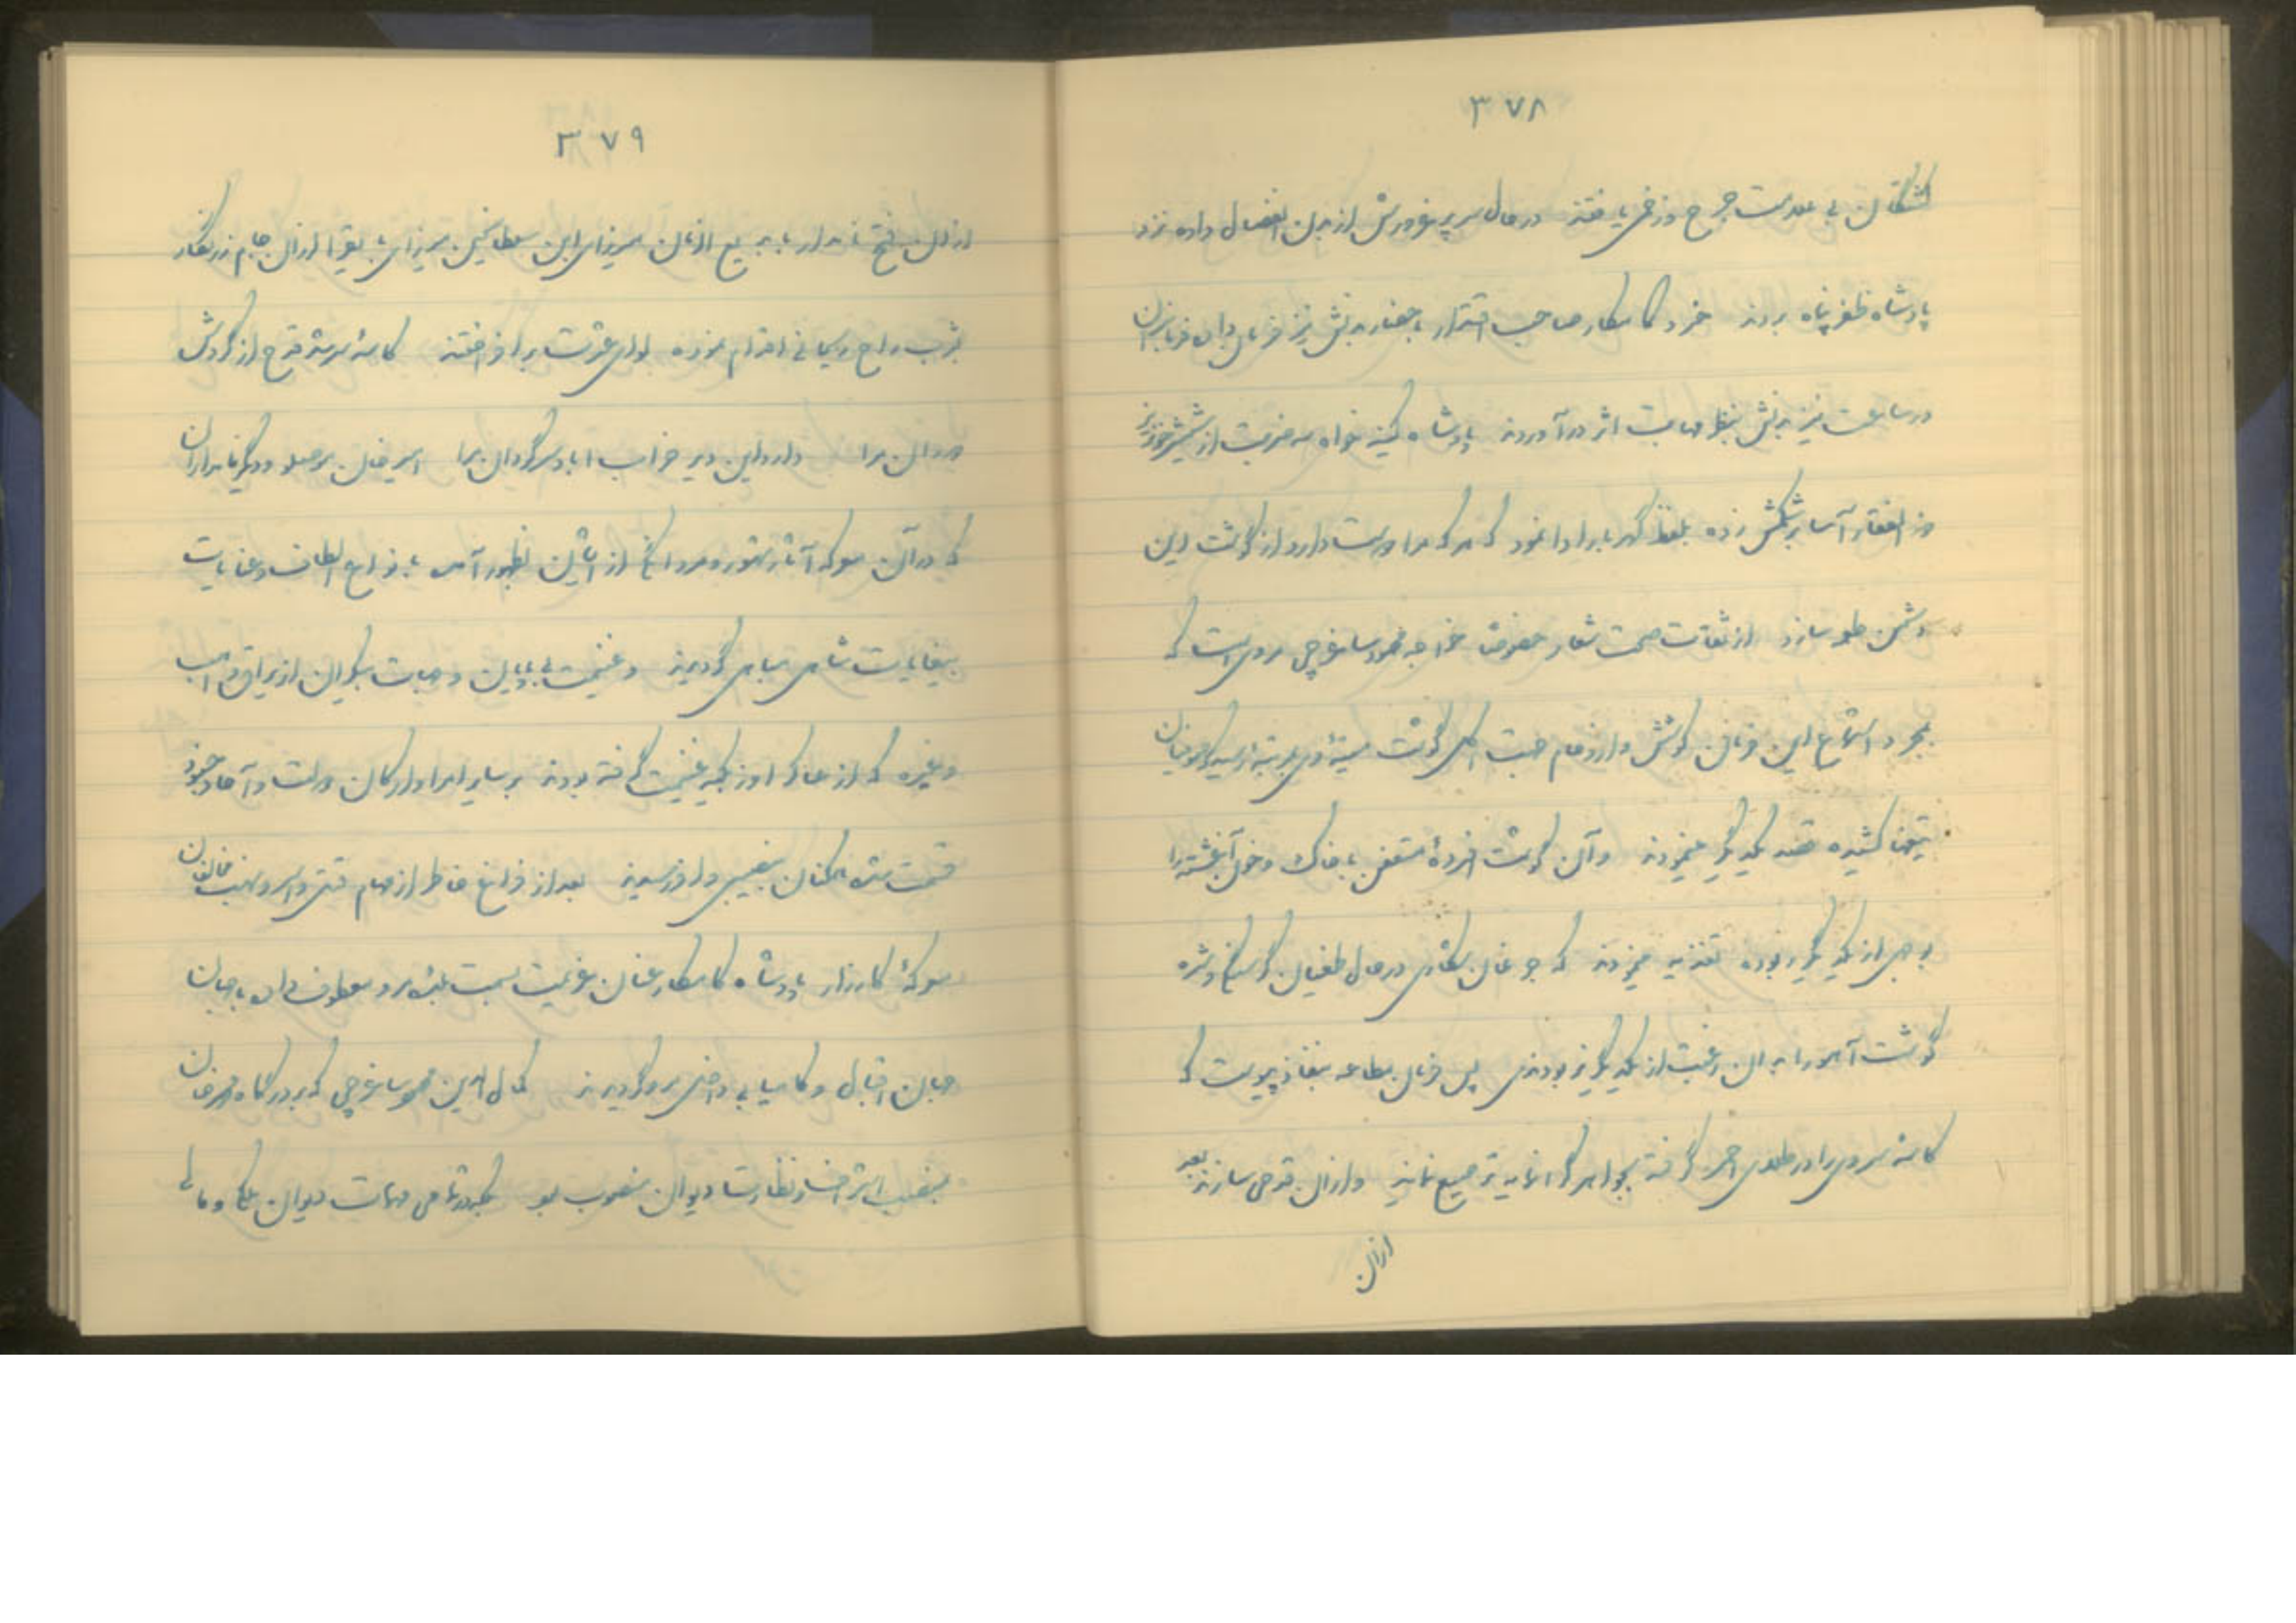 ۳۷۸
کشتگان بی علامت جرح و زخمی یافتند در حال سر پرغرورش از بدن انفصال داده نزد
پادشاه ظفر پناه بردند خسرو کامکار صاحب اقتدار باحضار بدنش نیز فرمان داد فرمانبران
در ساعت نیز بدنش بنظر مهابت اثر درآوردند پادشاه کینه خواه سه ضربت از شمشیر خونریز
ذوالفقار آسا بر شکمش زده بلفظ گهربار ادا نمود که هر که مرا دوست دارد از گوشت این
دشمن طعمه سازد از ثقات صحت شعار خصوصا خواجه محمود ساغرچی مرویست که
بمجرد استماع این فرمان کوشش و ازدحام جهت اکل گوشت میته بمرتبه رسید که صوفیان
تیغها کشیده قصد یکدیگر مینمودند و آن گوشت افسرده متعفن با خاک و خون آغشته را
بوجهی از یکدیگر ربوده تغذیه مینمودند که جوعان شکاری در حال طغیان گرسنگی و شره
گوشت آهو را بدان رغبت از یکدیگر نربودندی پس فرمان مطاعه بنفاذ پیوست که
کاسه سر وی را در طلای احمر گرفته بجواهر گرانمایه ترصیع نمایند و از آن قدحی سازند بعد
ازآن
۳۷۹
از آن فتح نامدار با بدیع الزمان میرزای ابن سلطان حسین میرزای بایقرا از آن جام زرنگار
بشرب راح ریحانی اقدام نموده لوای عشرت برافراختند کاسه سر شد قدح از گردش
دوران مرا دارد این دیر خراب آباد سرگردان مرا امیر خان موصلو و دیگر نامداران
که در آن معرکه آثار تهور و مردانگی از ایشان بظهور آمد بانواع الطاف و عنایات
بیغایات شاهی مباهی گردیدند و غنیمت بی پایان و جهات بیکران از یراق و اسب
و غیره که از عساکر اوزبکیه غنیمت گرفته بودند بر سایر امرا و ارکان دولت و آحاد جنود
قسمت شده همکنان بنصیبی وافر رسیدند بعد از فراغ خاطر از مهام قتل و اسر و نهب مخالفان
معرکه کارزار پادشاه کامکار عنان عزیمت بسمت بلده مرو معطوف داده با جهان
جهان اقبال و کامیابی داخل مرو گردیدند کمال الدین محمود ساغرچی که بر درگاه محمد خان
بمنصب اشراف و نظارت دیوان منصوب بود بلکه در تمامی مهمات دیوان ملکی و مالی